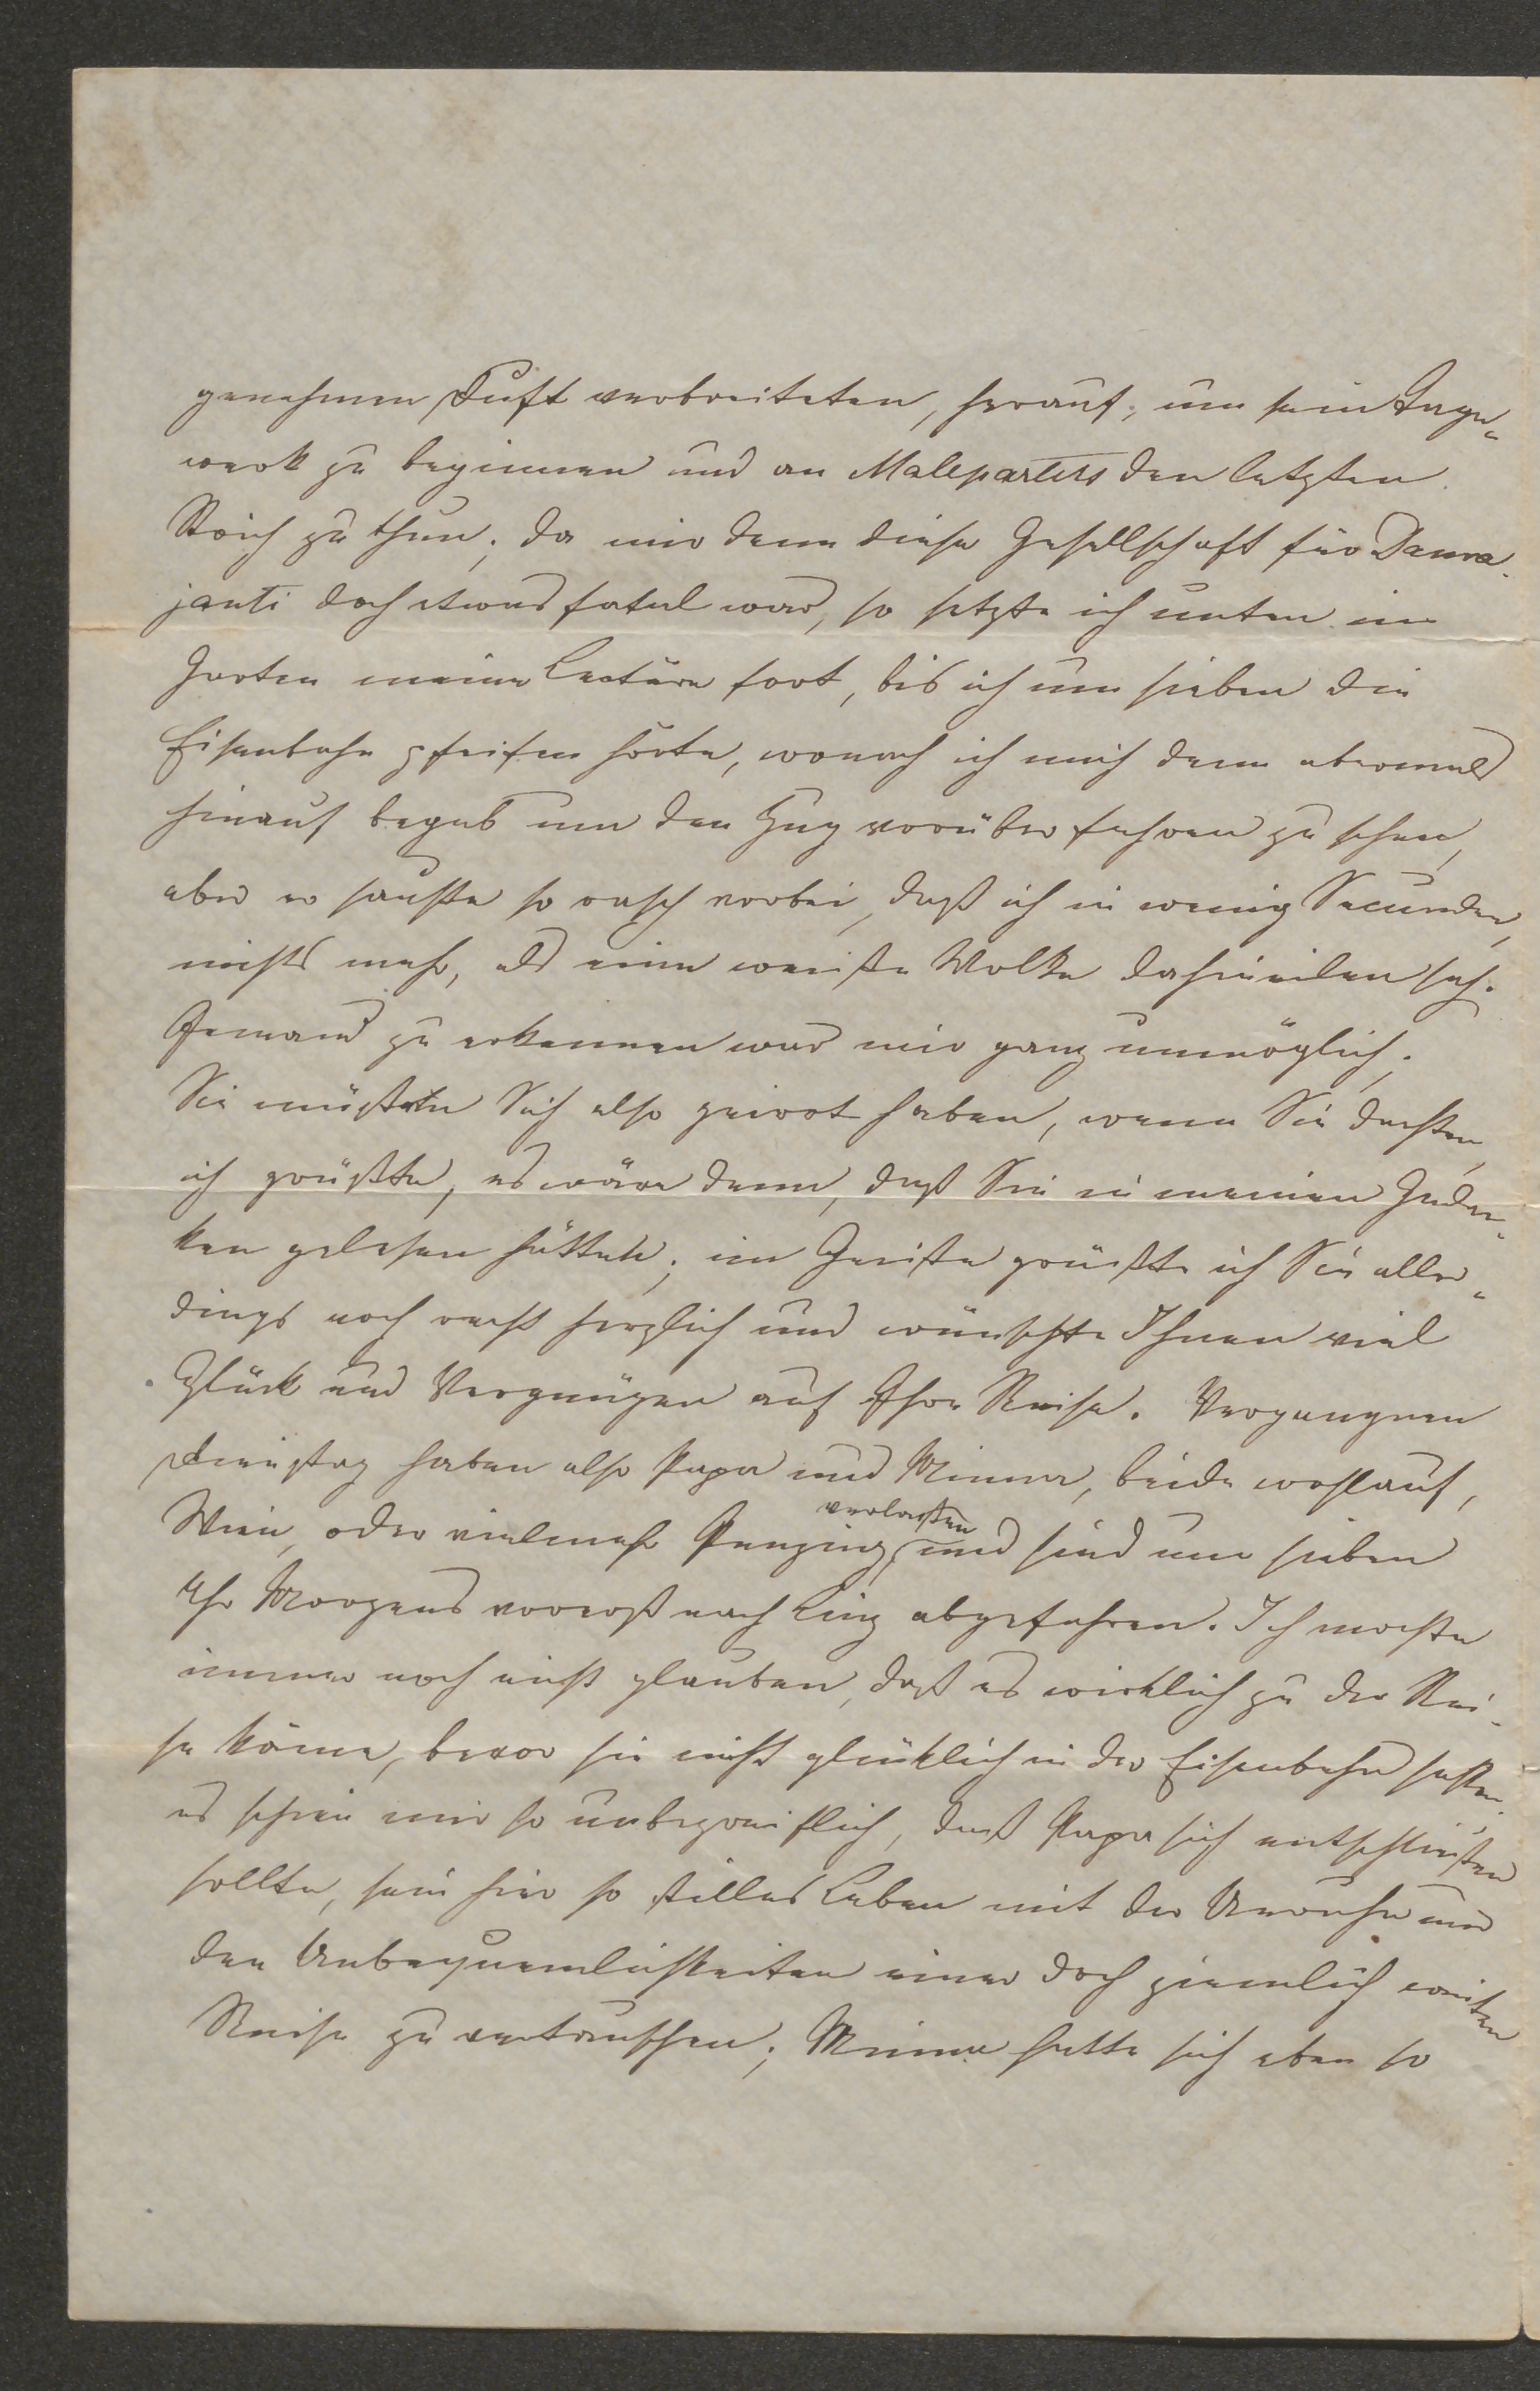 genehmen Duft verbreiteten, herauf, um sein Tage„
werk zu beginnen und an Malepartus den letzten
Strich zu thun; da mir denn diese Gesellschaft für Dama¬
janti doch etwas fatal war, so setzte ich unten im
Garten meine Lectüre fort, bis ich um sieben die
Eisenbahn pfeifen hörte, wonach ich mich denn abermals
hinauf begab um den Zug vorüber fahren zu sehen,
aber er sauste so rasch vorbei, daß ich in wenig Secunden,
nichts mehr, als eine weiße Wolke dahineilen sah.
Jemand zu erkennen war mir ganz unmöglich,
Sie müßten Sich also geirrt haben, wenn Sie dachten,
ich grüßte, es wäre denn, daß Sie in meinen Gedan„
ken gelesen hätten; im Geiste grüßte ich Sie aller„
dings noch recht herzlich und wünschte Ihnen viel
Glück und Vergnügen auf Ihre Reise. Vergangnen
Dienstag haben also Papa und Minna, beide wohlauf,
Wien, oder vielmehr Penzing, verlaßen und sind um sieben
Uhr Morgens vorerst nach Linz abgefahren. Ich mochte
immer noch nicht glauben, daß es wirklich zu der Rei¬
se käme, bevor sie nicht glücklich in der Eisenbahn saßen,
es schien mir so unbegreiflich, daß Papa sich entschließen
sollte, sein hier so stilles Leben mit der Unruhe und
den Unbequemlichkeiten einer doch ziemlich weiten
Reise zu vertauschen; Minna hatte sich eben so